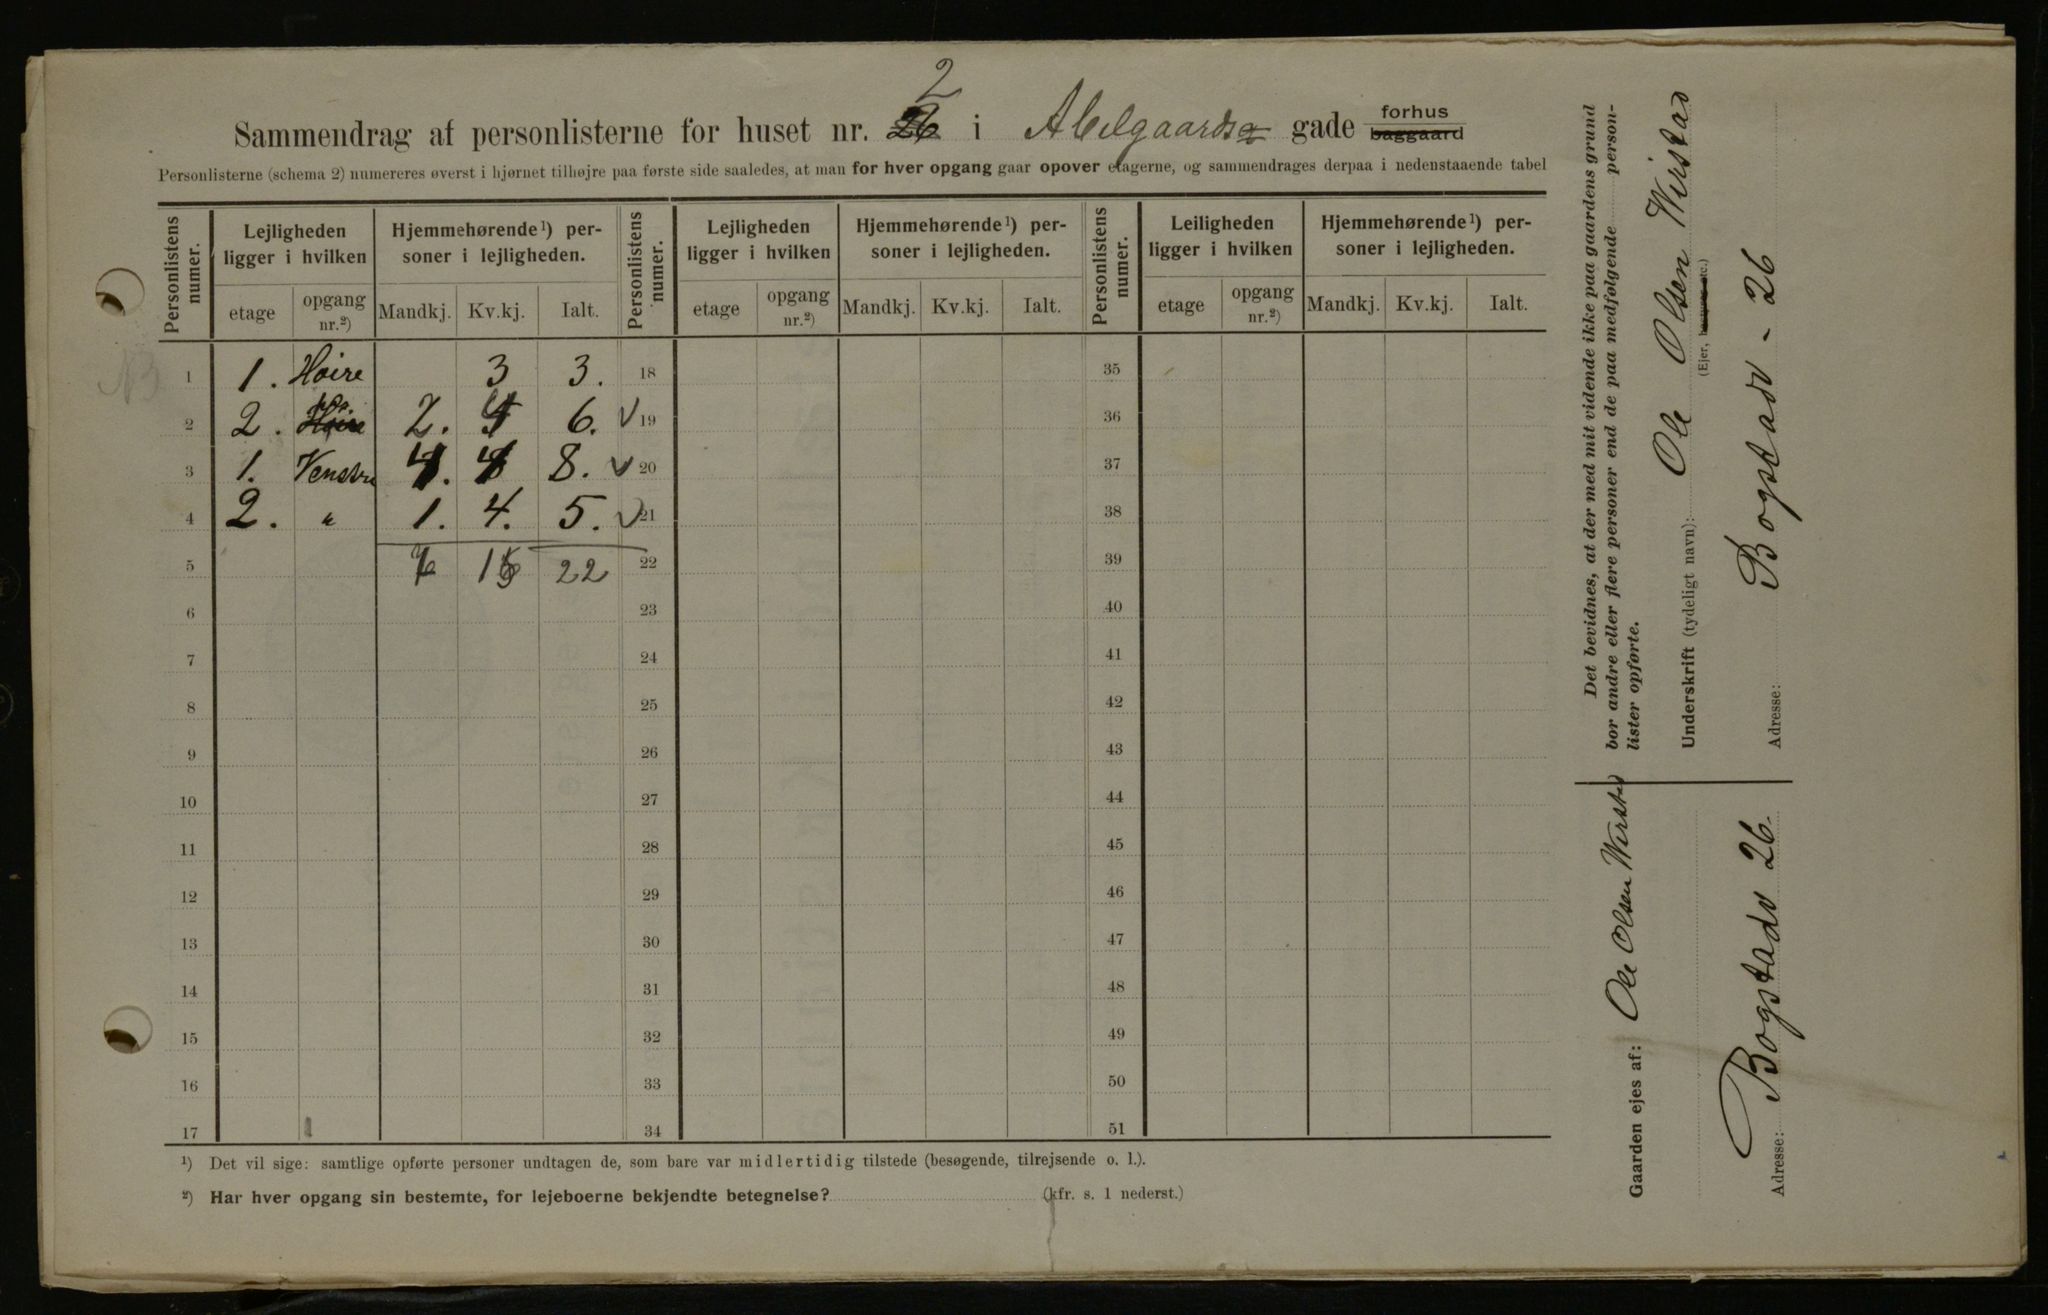 2
Sammendrag af personlisterne for huset nr. 26 i Abelgaardsa gade forhus baggaard
Personlisterne (schema 2) numereres øverst i hjørnet tilhøjre paa første side saaledes, at man for hver opgang gaar opover etagerne, og sammendrages derpaa i nedenstaaende tabel
Personlistens numer. Lejligheden ligger i hvilken Hjemmehørende¹) personer i lejligheden. Personlistens numer. Lejligheden ligger i hvilken Hjemmehørende¹) personer i lejligheden. Personlistens numer. Leiligheden ligger i hvilken Hjemmehørende¹) personer i lejligheden.
etage opgang nr.²) Mandkj. Kv.kj. Ialt. etage opgang nr.²) Mandkj. Kv.kj. Ialt. etage opgang nr.²) Mandkj. Kv.kj. Ialt.
1 1. Høire 3 3. 18 35
2 2. Høire 2. 4 6. √ 19 36
3 1. Venstre 4. 4 8. √ 20 37
4 2. " 1. 4. 5. √ 21 38
5 7 15 22 22 39
6 23 40
7 24 41
8 25 42
9 26 43
10 27 44
11 28 45
12 29 46
13 30 47
14 31 48
15 32 49
16 33 50
17 34 51
¹) Det vil sige: samtlige opførte personer undtagen de, som bare var midlertidig tilstede (besøgende, tilrejsende o. l.).
²) Har hver opgang sin bestemte, for lejeboerne bekjendte betegnelse? (kfr. s. 1 nederst.)
Det bevidnes, at der med mit vidende ikke paa gaardens grund
bor andre eller flere personer end de paa medfølgende personlister opførte.
Underskrift (tydeligt navn): Ole Olsen Wirstad
(Ejer, bestyrer etc.)
Adresse: Bogstadv - 26
Gaarden ejes af: Ole Olsen Wirstad
Adresse: Bogstadv 26.